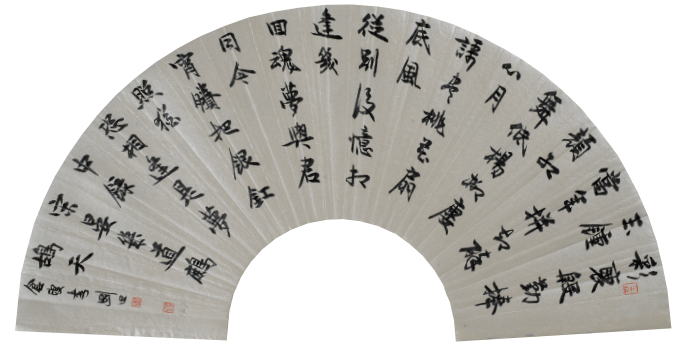 彩褎殷勤捧
玉鍾
當年拚却醉
顏紅
舞低楊柳樓
心月
謌盡桃花扇
底風
從別後憶相
逢幾
回魂夢與君
同今
宵賸把銀釭
照猶
恐相逢是夢
中錄
宋晏幾道鷓
鴣天
剛田